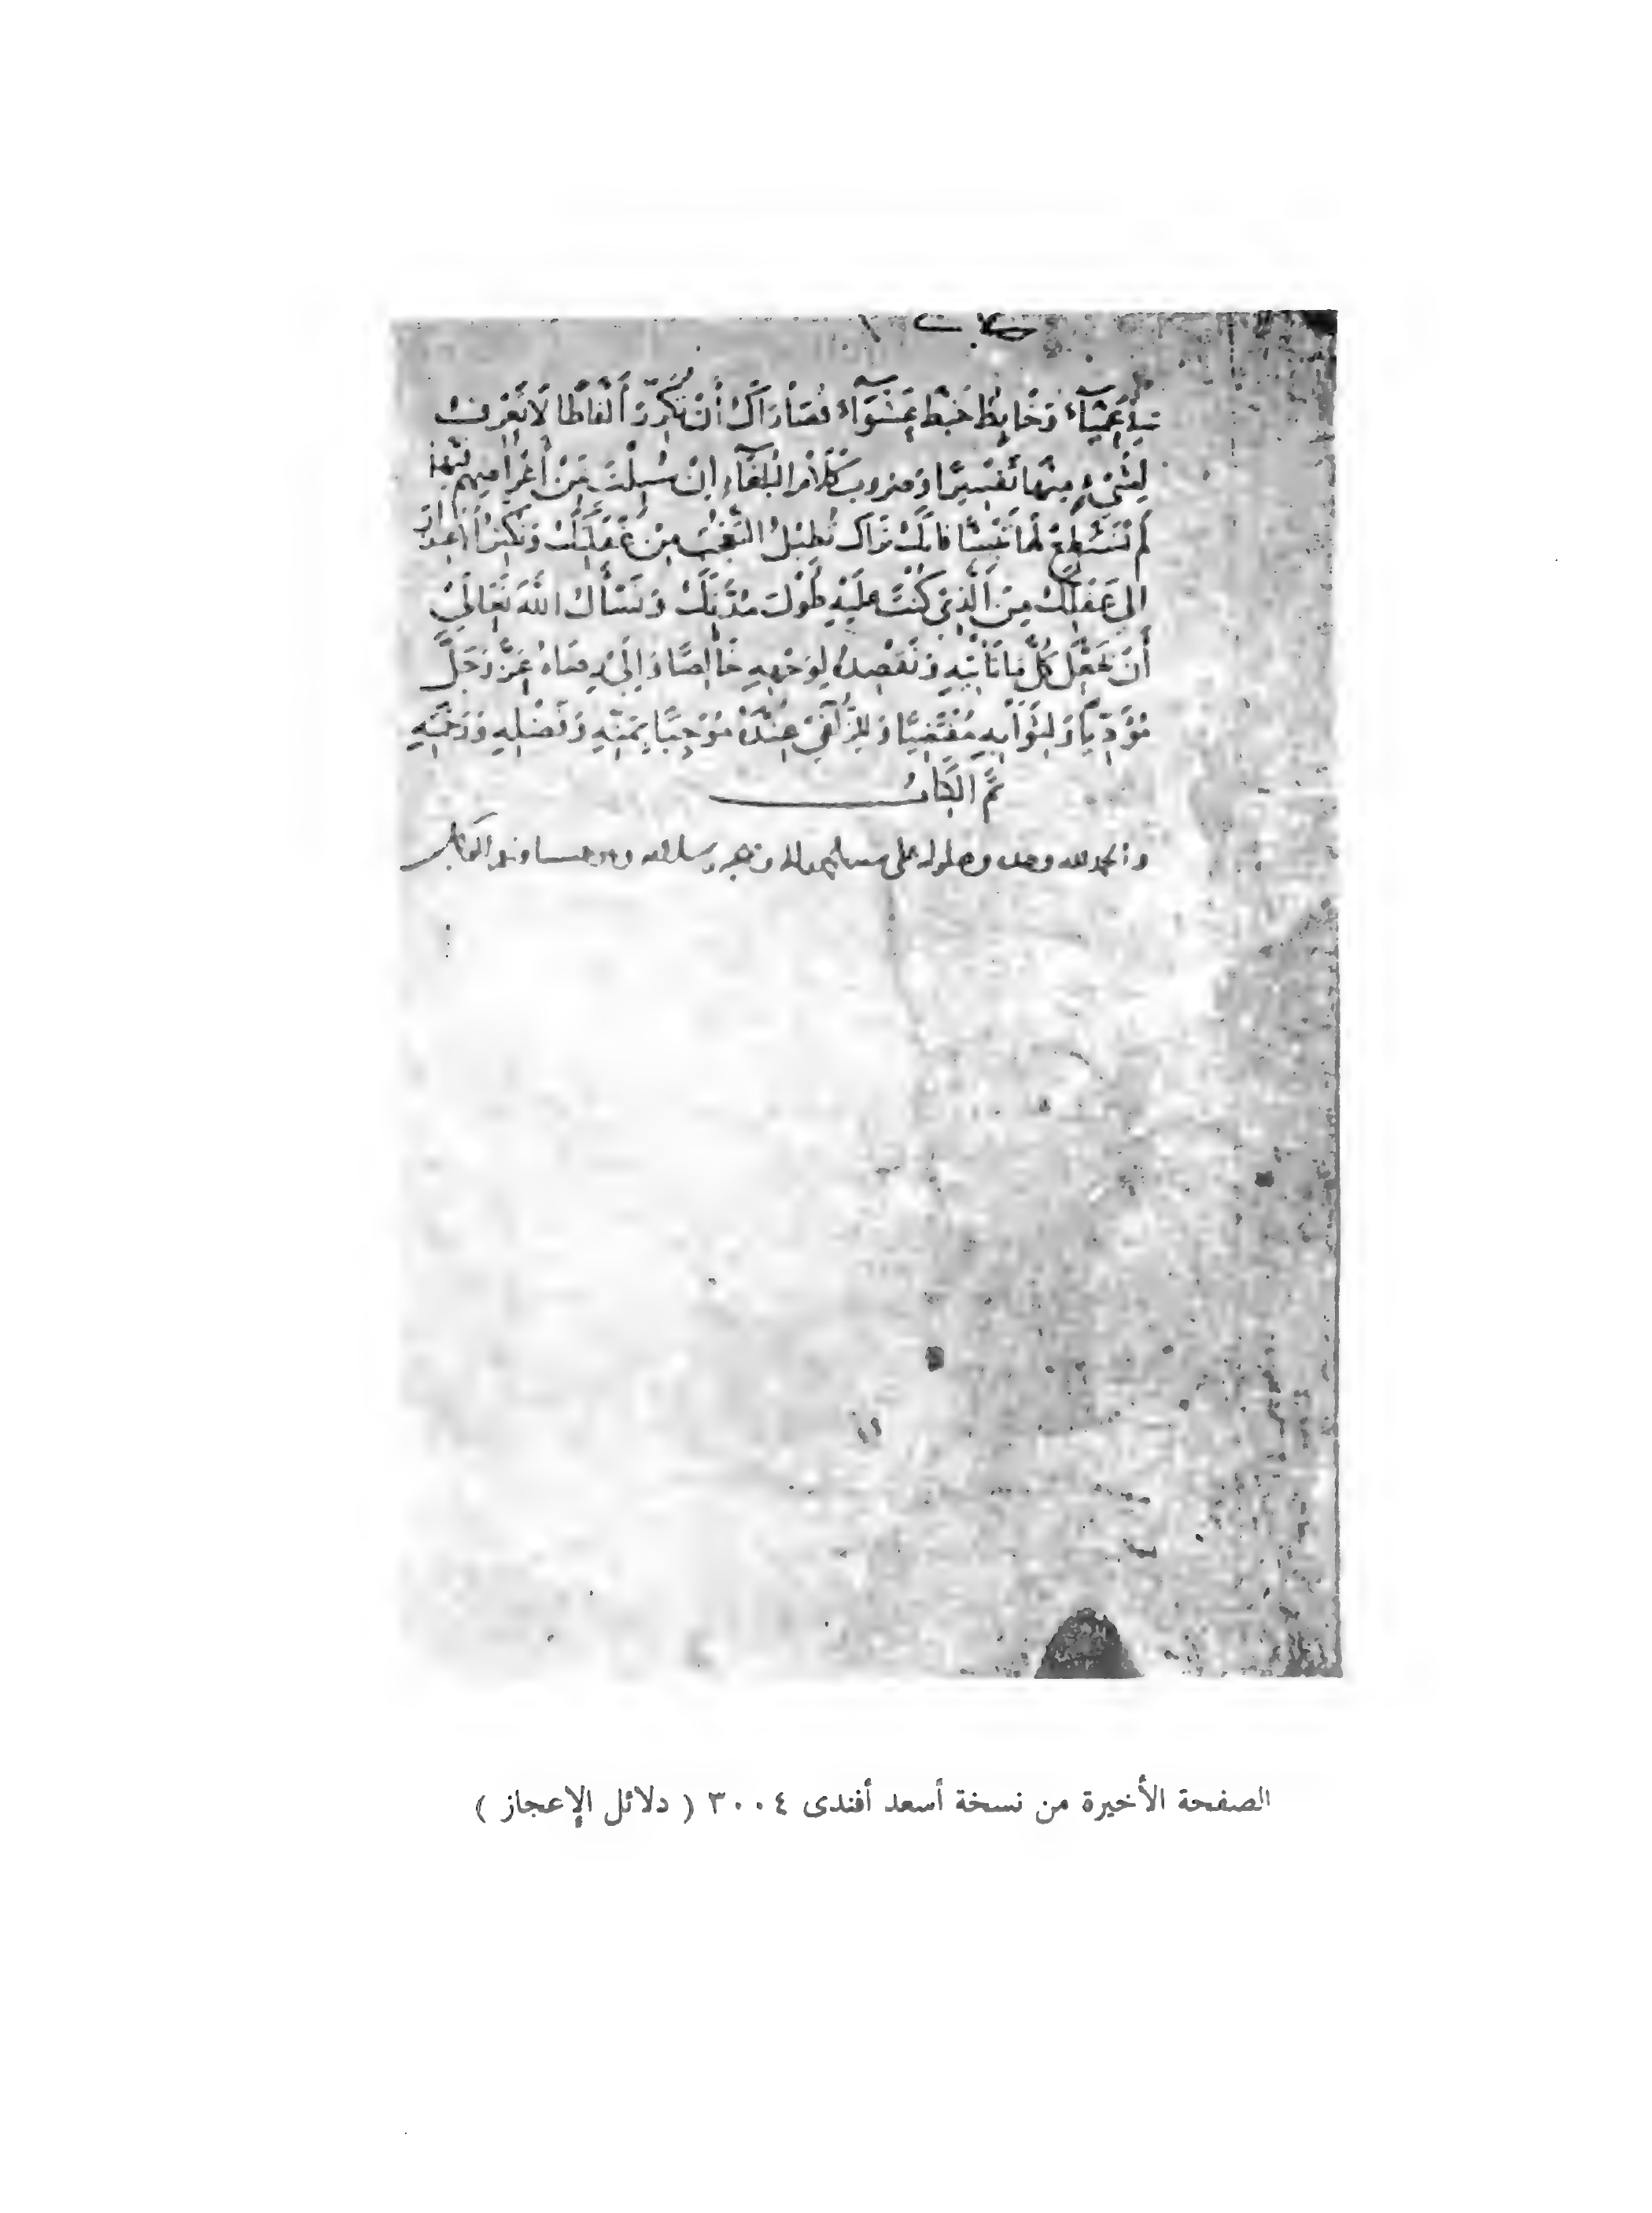 عمياء وخابط خبط عشواء قصاراك أن تكرر ألفاظا لا تعرف
لشيء منها تفسيرا وضروب كلام البلغاء إن سئلت عن أغراضهم فيها
لم تستطع لها تبيينا فإنك تراك تطيل التعجب من غفلتك وتكثر الاعتذار
إلى عقلك من الذي كنت عليه طول مدتك ونسأل الله تعالى
أن يجعل كل ما نأتيه ونقصده لوجهه خالصا وإلى رضاه عز وجل
مؤديا ولثوابه مقتضيا وللزلفى عنده موجبا بمنه وفضله ورحمته
تم الكتاب
والحمد لله وحده وصلواته على محمد وآله وصحبه وسلامه وهو حسبنا ونعم الوكيل
الصفحة الأخيرة من نسخة أسعد أفندى ٣٠٠٤ ( دلائل الإعجاز )